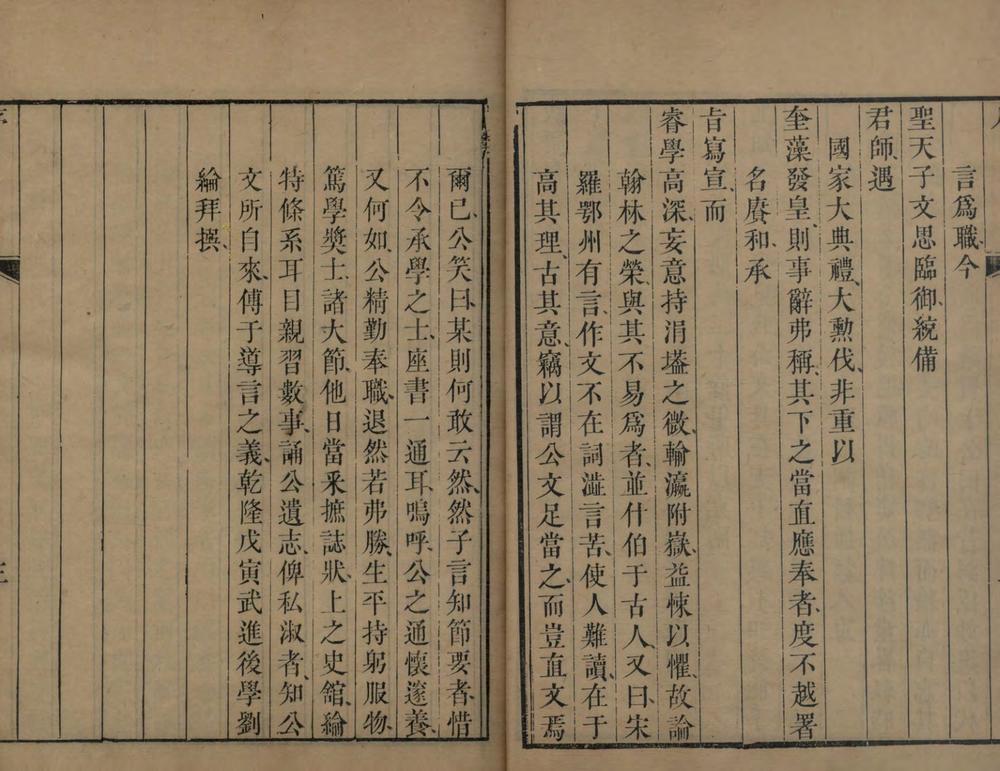 言爲職今
聖天子文思臨御統備
君師遇
國家大典禮大勲伐非重以
奎藻發皇則事辭弗稱其下之當直應奉者度不越署
名賡和承
旨寫宣而
睿學高深妄意持涓壒之微輸瀛附嶽益悚以懼故論
翰林之榮與其不易爲者並什伯于古人又曰宋
羅鄂州有言作文不在詞澁言苦使人難讀在于
高其理古其意竊以謂公文足當之而豈直文焉
爾已公笑曰某則何敢云然然子言知節要者惜
不令承學之士座書一通耳嗚呼公之通懷邃養
又何如公精勤奉職退然若弗勝生平持躬服物
篤學奬士諸大節他日當釆摭誌狀上之史舘綸
特條系耳目親習數事誦公遺志俾私淑者知公
文所自來傅于導言之義乾隆戊寅武進後學劉
綸拜撰